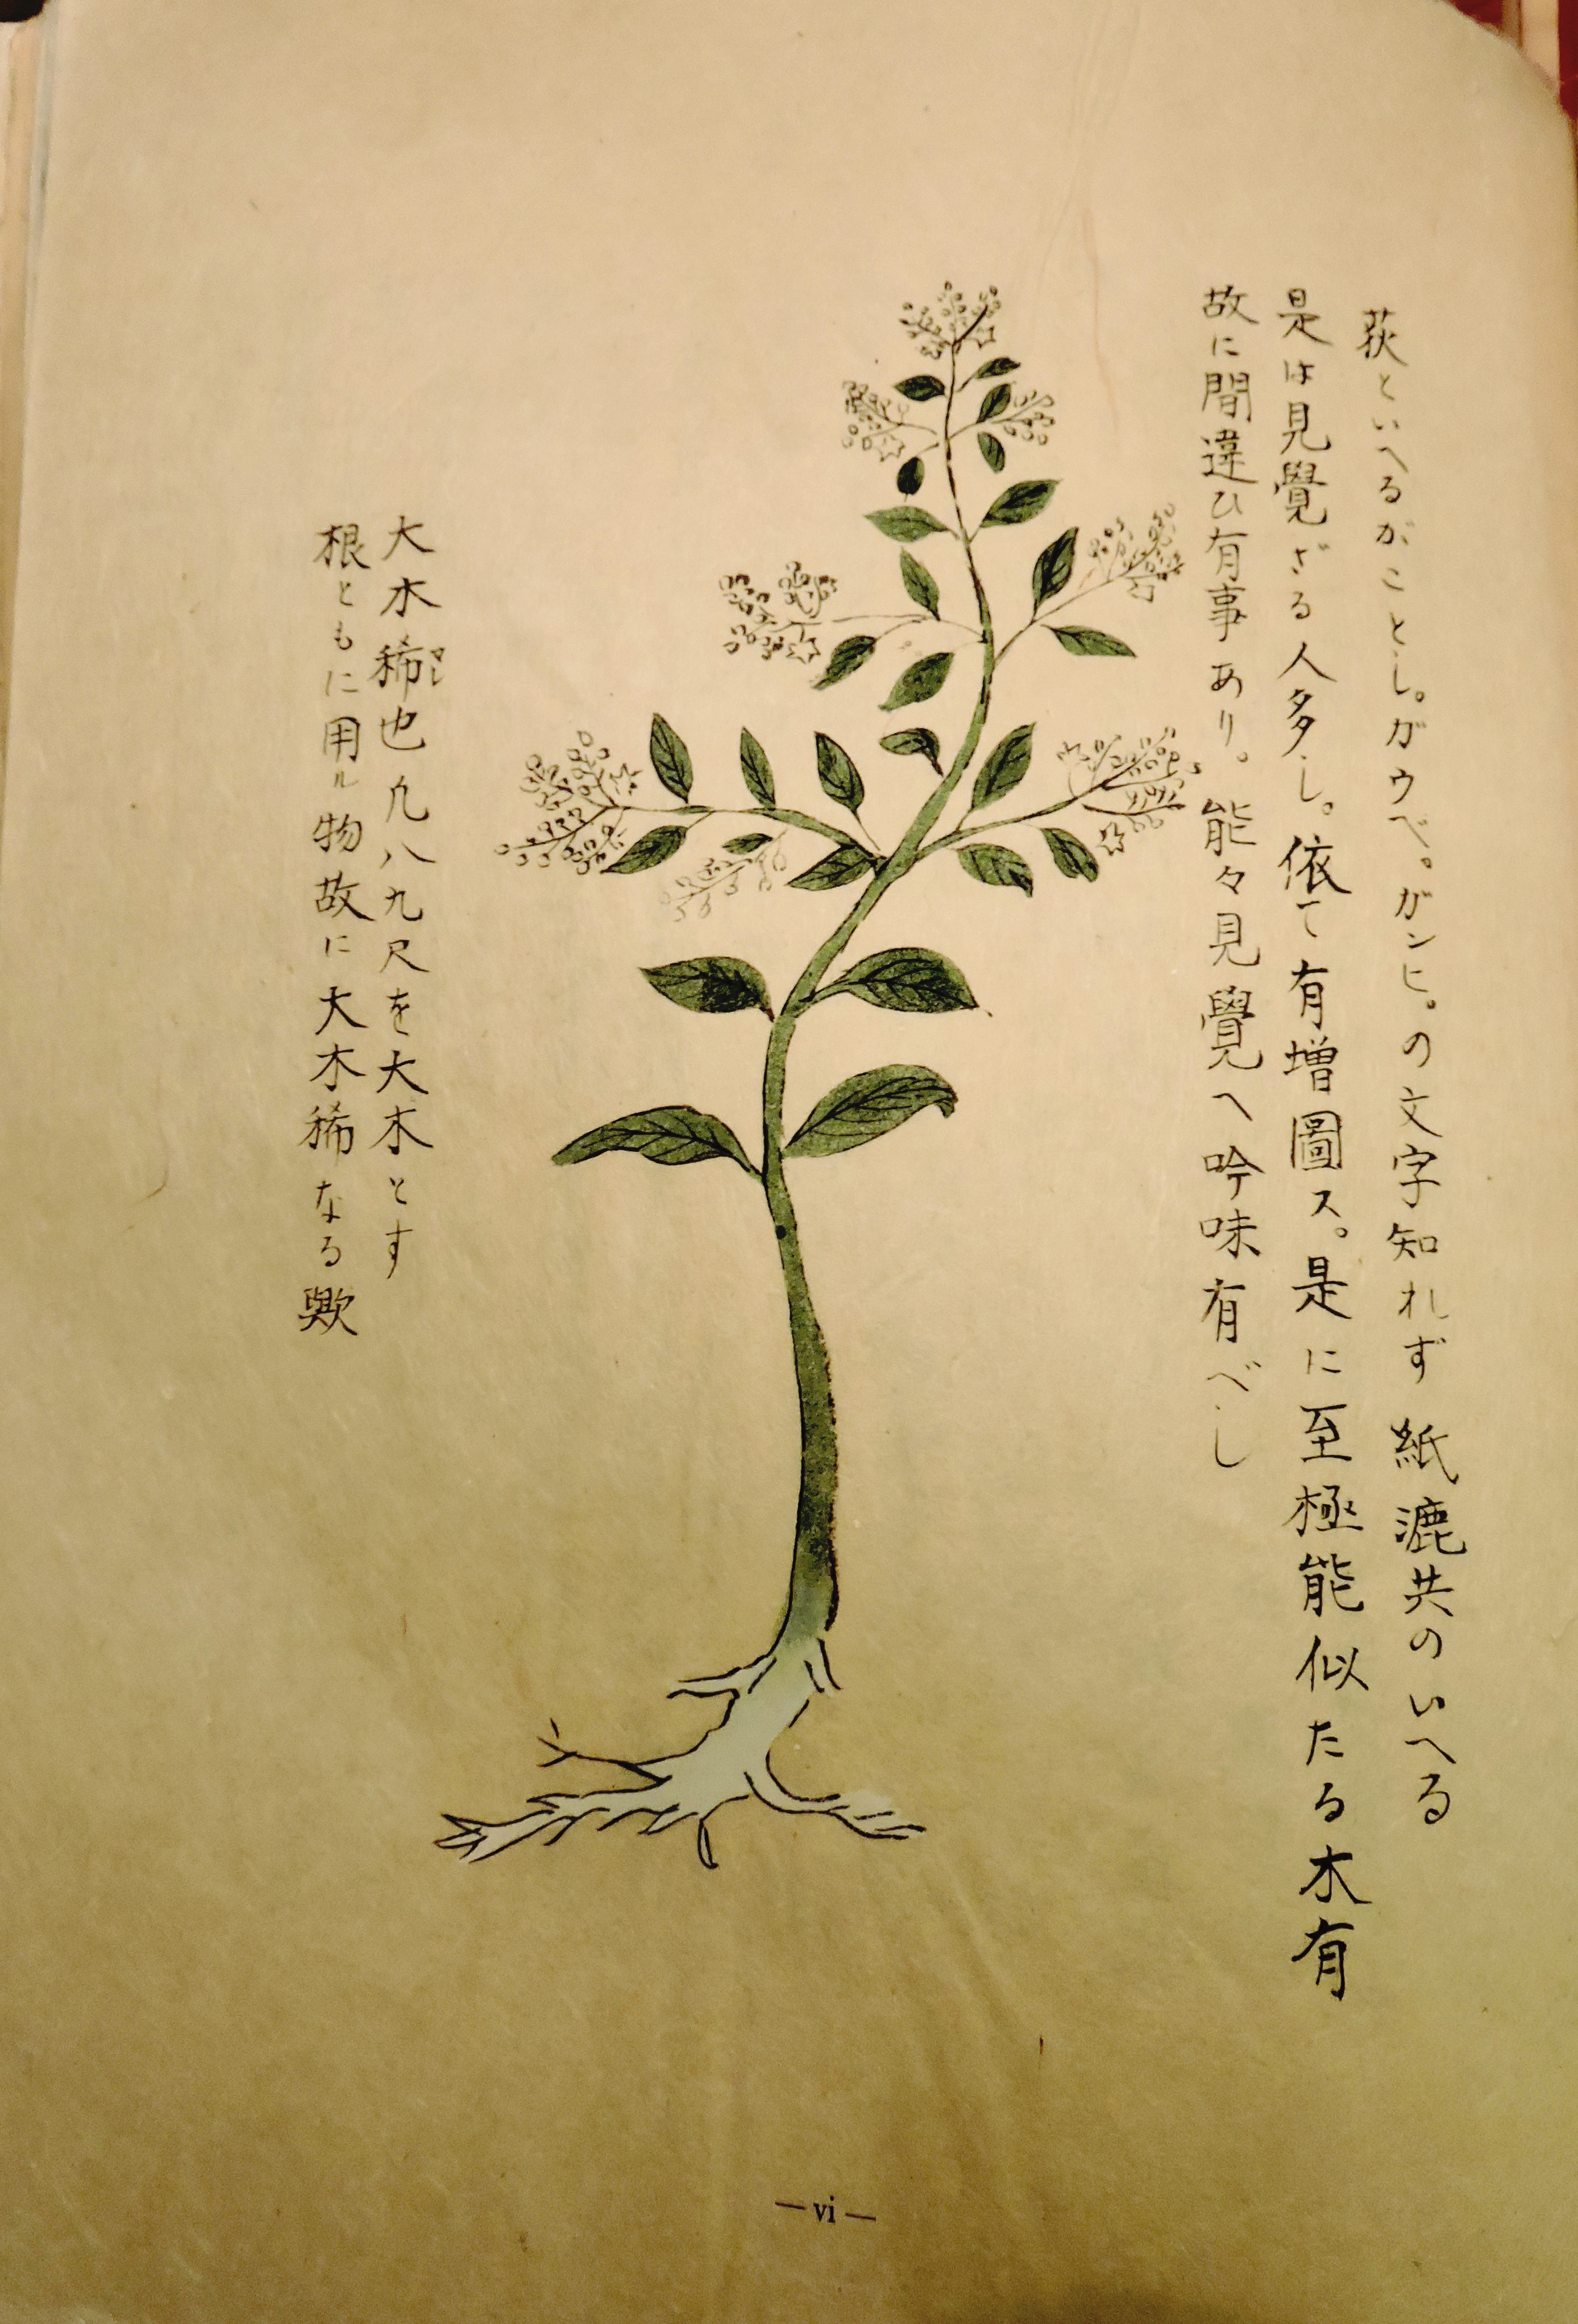 荻といへるがことし。ガウベ。ガンヒ。の文字知れず 紙漉共のいへる
是は見覺ざる人多し。依て有増圖ス。是に至極能似たる木有
故に間違ひ有事あり。能々見覺へ吟味有べし
大木稀也凢八九尺を大木とす
マレ
根ともに用ル物故に大木稀なる歟
— vi —